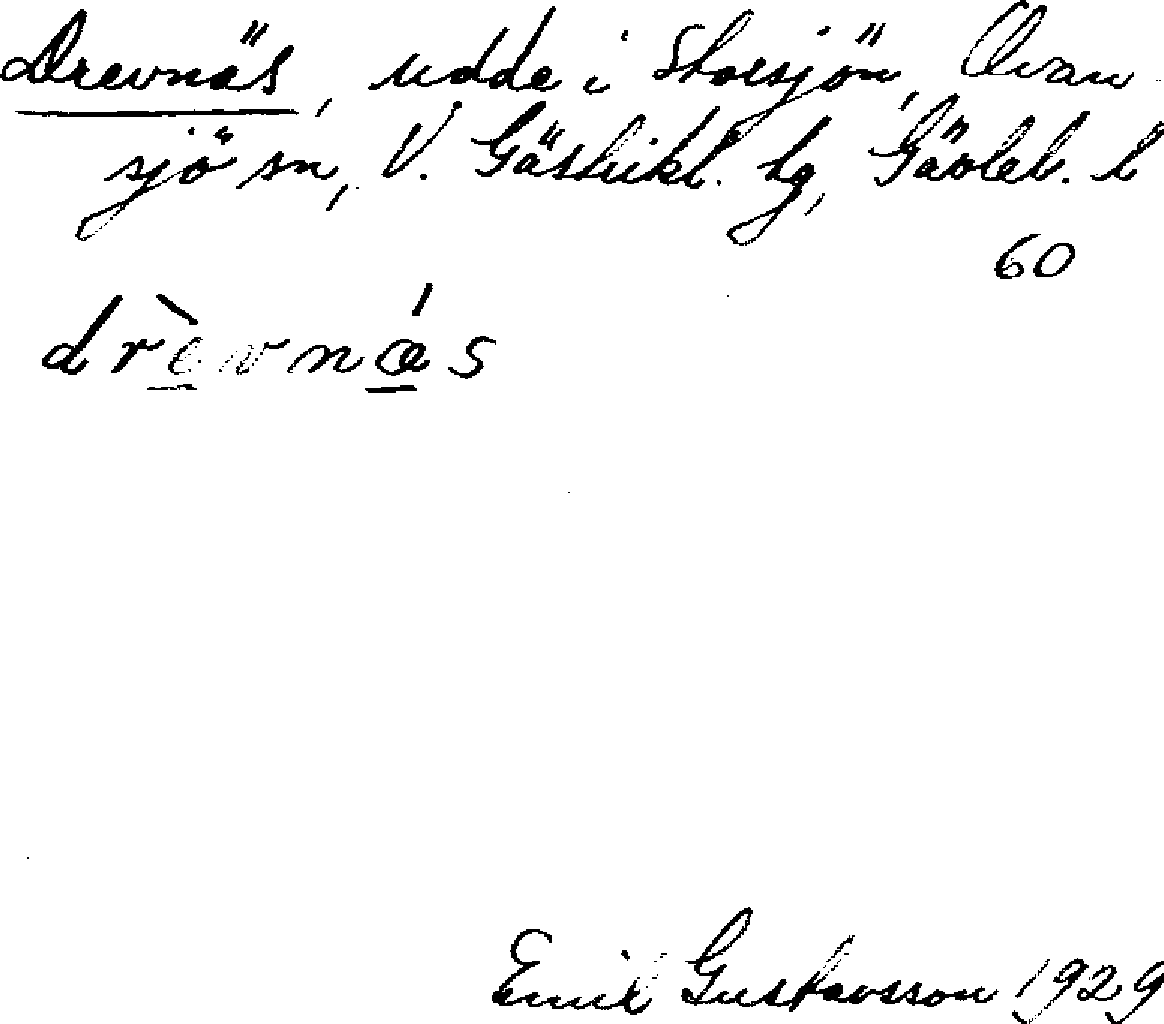 Drevnäs, udde i Storsjön, Ovan-
sjö sn, V. Gästrikl. hg, Gävleb. l
60
drèvnǽs
Emil Gustavsson 1929